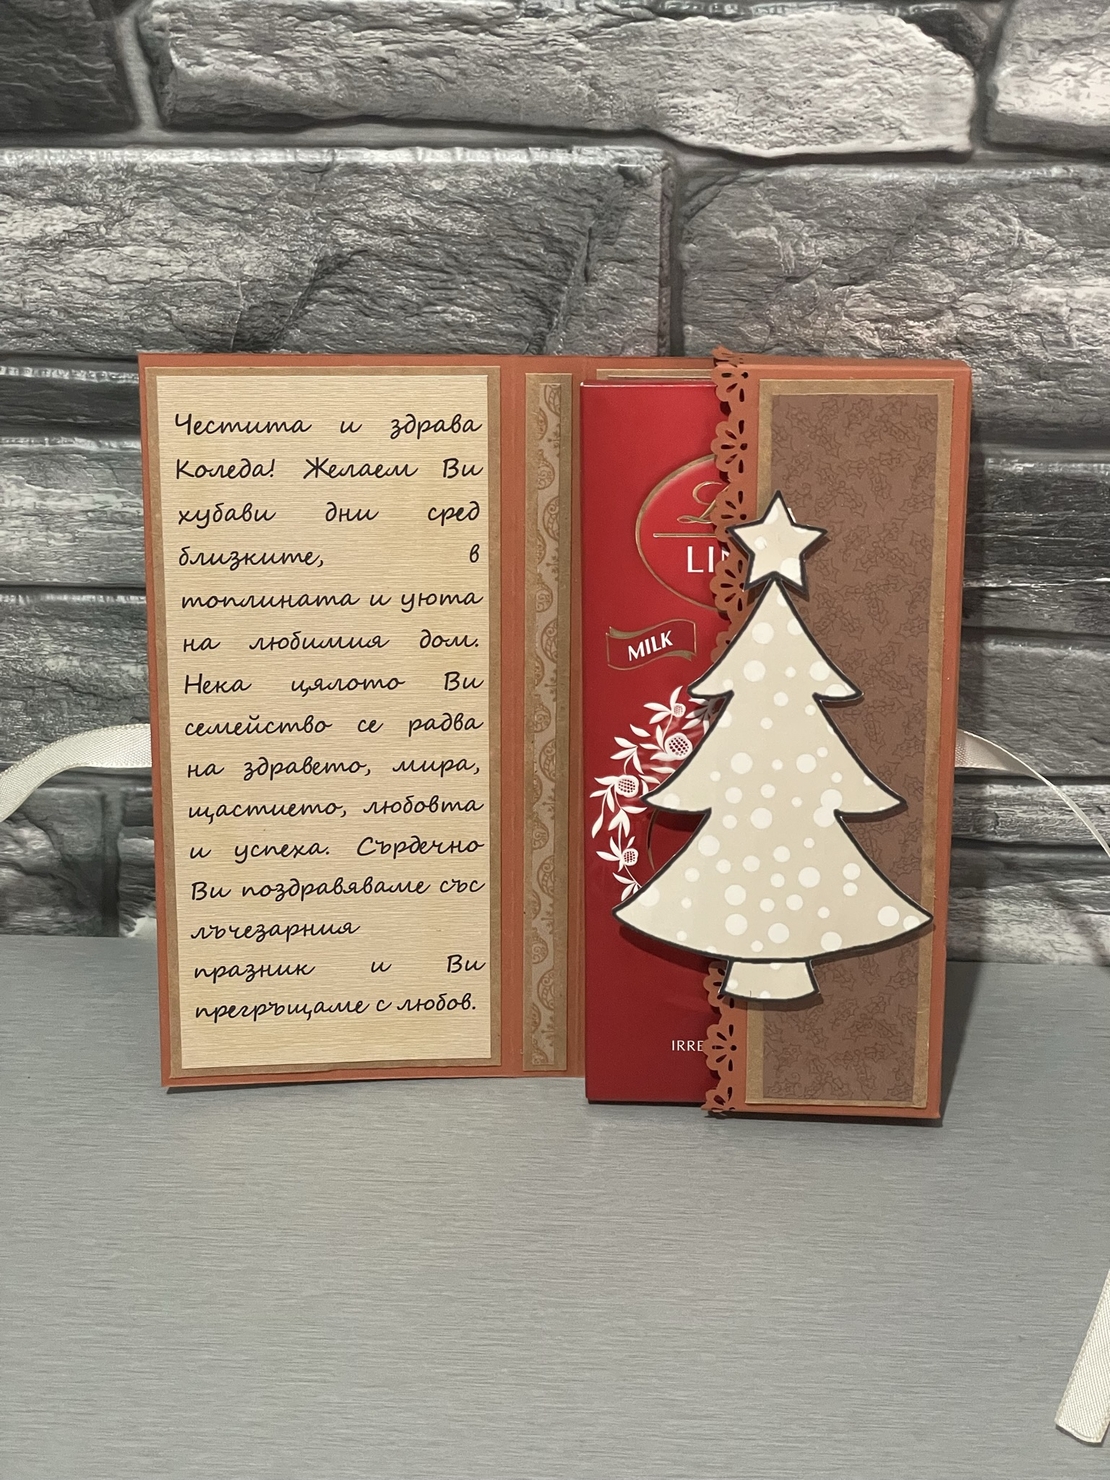 Честита и здрава
Коледа! Желаем Ви
хубави дни сред
близките, в
топлината и уюта
на любимия дом.
Нека цялото Ви
семейство се радва
на здравето, мира,
щастието, любовта
и успеха. Сърдечно
Ви поздравяваме със
лъчезарния
празник и Ви
прегръщаме с любов.
MILK